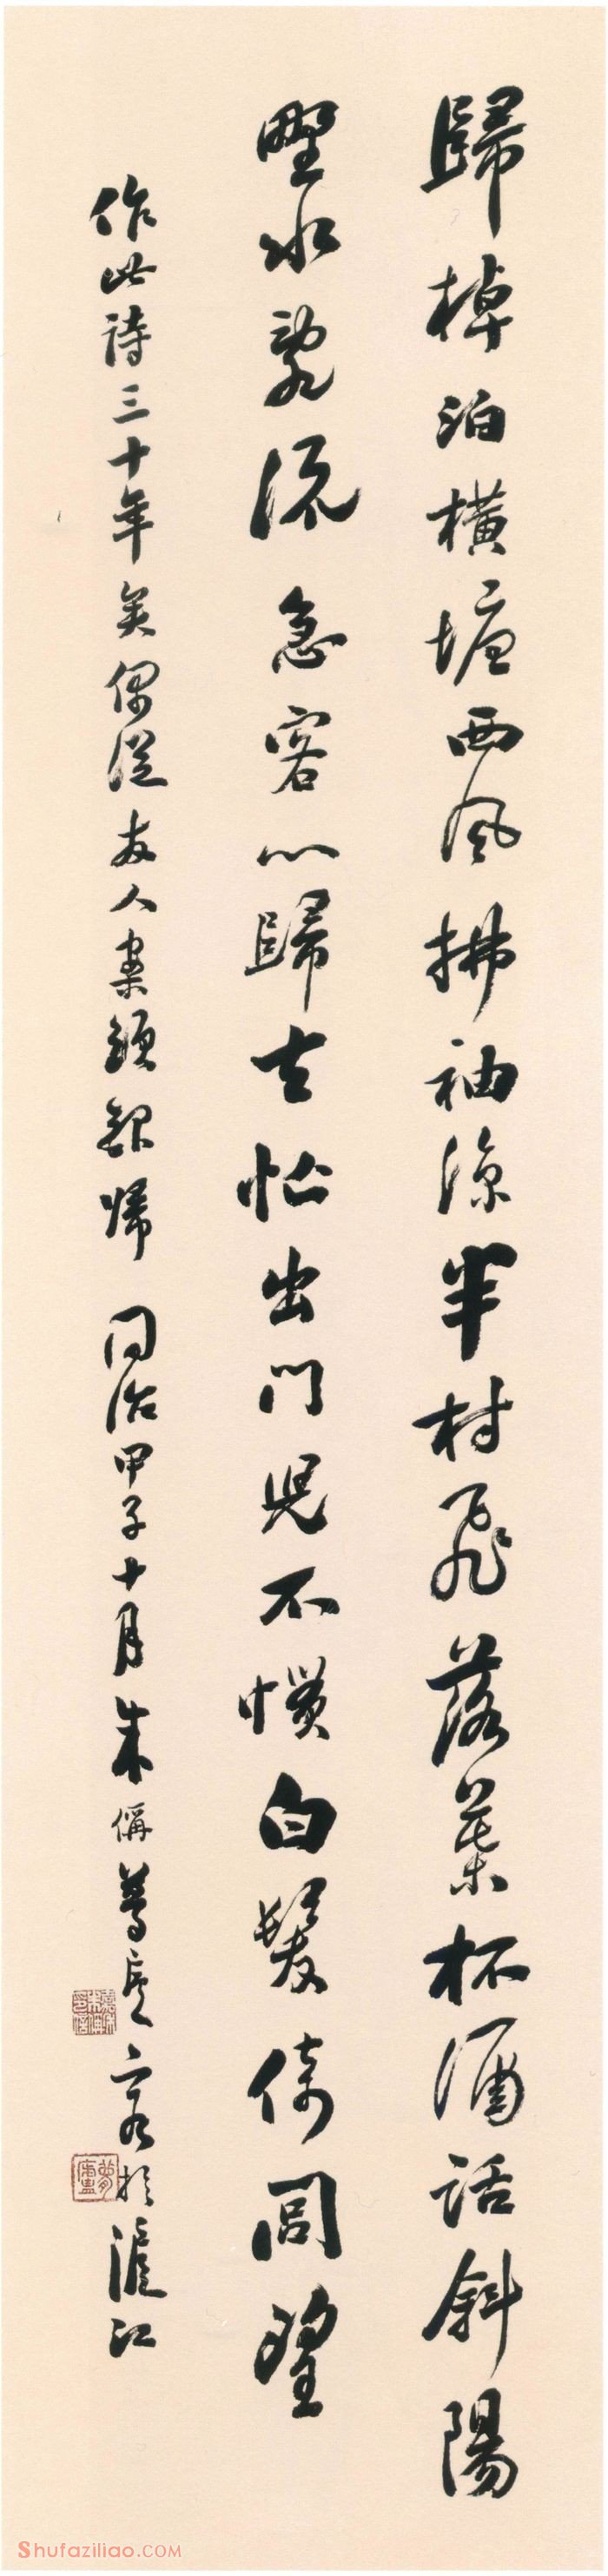 歸棹泊橫塘西風拂袖涼半村飛落葉杯酒話斜陽
野水亂流急客心歸去忙出門兒不慣白髮倚閭望
作此詩三十年矣偶從友人案頭錄歸同治甲子十月朱偁夢廬客於滬江
Shufaziliao.COM